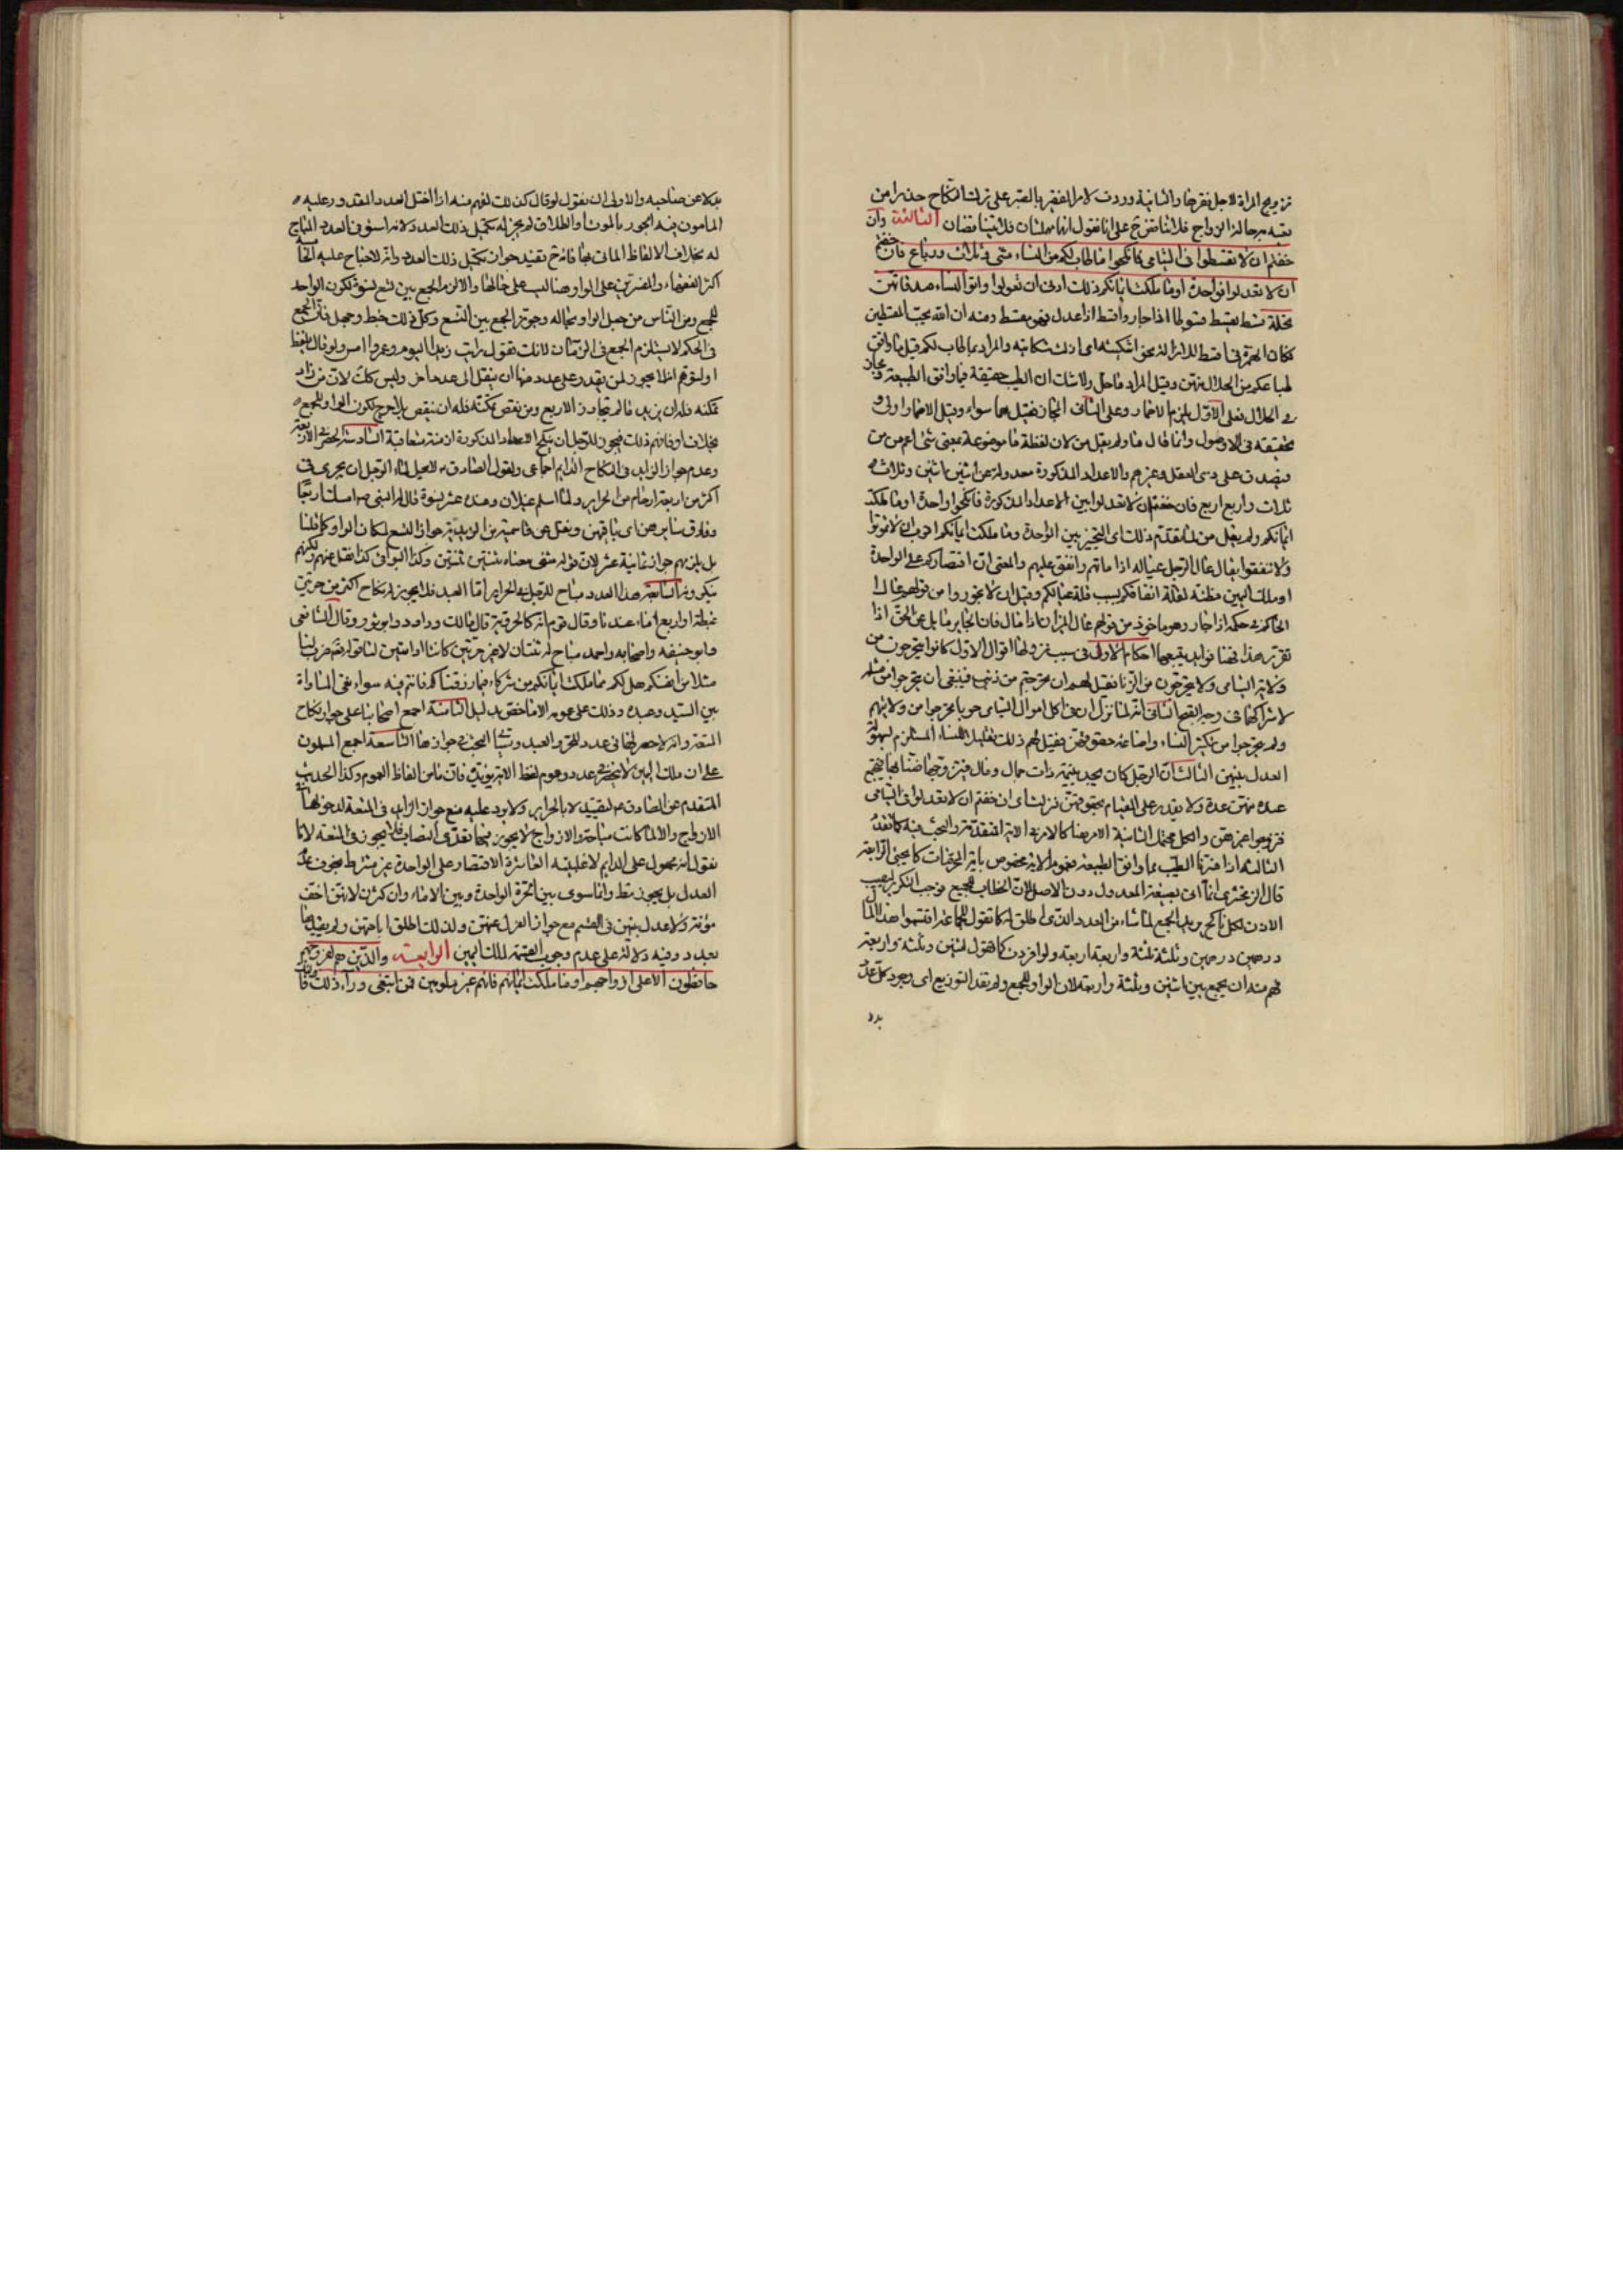 تزويج المراة لاجل فقرها والثانية وردت لامر الفقير بالصبر على ترك النكاح حذرا من
تعبه بحال الزواج فلا تناقض على انا نقول انهما مهملتان فلا يتناقضان الثالثة وان
خفتم ان لا تقسطوا فى اليتامى فانكحوا ما طاب لكم من النساء مثنى وثلاث ورباع فان خفتم
ان لا تعدلوا فواحدة او ما ملكت ايمانكم ذلك ادنى ان لا تعولوا واتوا النساء صدقاتهن
نحلة قسط يقسط قسوطا اذا جار واقسط اذا عدل فهو مقسط ومنه ان الله يحب المقسطين
فكان الهمزة فى اقسط للازالة نحو اشكيته اى ازلت شكايته والمراد بما طاب لكم قيل ما وافق
طباعكم من الحلال منهن وقيل المراد ما حل ولا شك ان الطيب حقيقة فيما وافق الطبيعة ومجاز
فى الحلال فعلى الاول يلزم الاضمار وعلى الثانى المجاز فقيل هما سواء وقيل الاضمار اولى و
تحقيقه فى الاصول وانما قال ما ولم يقل من لان لفظة ما موضوعة بمعنى شئ اعم من من
فيصدق على ذى العقل وغيرهم والاعداد المذكورة معدولة عن اثنين اثنين وثلاث
ثلاث واربع اربع فان خفتم ان لا تعدلوا بين الاعداد المذكورة فانكحوا واحدة او ما ملكت
ايمانكم ولم يقل من لما تقدم ذلك اى التخيير بين الواحدة وما ملكت ايمانكم اقرب ان لا تمونوا
ولا تنفقوا يقال عال الرجل عياله اذا مانهم وانفق عليهم والمعنى ان اقتصاركم على الواحدة
او ملك اليمين مظنة لقلة انفاقكم بسبب قلة عيالكم وقيل ان لا تجوروا من قولهم عال
الحاكم فى حكمه اذا جار وهو ماخوذ من قولهم عال الميزان اذا مال فان الجاير مايل عن الحق اذا
تقرر هذا فهنا فوايد يتبعها احكام الاولى فى سبب نزولها اقوال الاول كانوا يتحرجون من
ولاية اليتامى ولا يتحرجون من الزنا فقيل لهم ان تحرجتم من ذنب فينبغى ان تتحرجوا من مثله
لاشتراكهما فى وجه القبح الثانى انه لما نزل ان فى اكل اموال اليتامى حوبا تحرجوا من ولايتهم
ولم يتحرجوا من تكثير النساء واضاعة حقوقهن فقيل لهم ذلك لتقليل النساء المستلزم لسهولة
العدل بينهن الثالث ان الرجل كان يجد يتيمة ذات جمال ومال فيتزوجها ضنا بها فيجتمع
عنده منهن عدة ولا يقدر على القيام بحقوقهن فنزلت اى ان خفتم ان لا تعدلوا فى اليتامى
فتزوجوا غيرهن والكل محتمل الثانية الامر هنا كالامر فى الاية المتقدمة والبحث فيه كما تقدم
الثالثة اذا فسرنا الطيب بما وافق الطبيعة فعموم الاية مخصوص باية المحرمات كما يجئ الرابعة
قال الزمخشرى انما اتى بصيغة المعدول دون الاصل لان الخطاب للجميع فوجب التكرير ليصيب
الاذن لكل ناكح يريد الجمع لما شاء من العدد الذى اطلق له كما تقول للجماعة اقتسموا هذا المال
درهمين درهمين وثلثة ثلثة واربعة اربعة ولو افردت كما تقول اثنين وثلثة واربعة
فهم منه ان يجمع بين اثنين وثلثة واربعة لان الواو للجمع ولم تفد التوزيع اى وجود كل عدد
بدلا
بدلا عن صاحبه والاولى ان نقول لو قال كذلك لفهم منه اذا اختل العدد المقدور عليه
المامون فيه الجور بالموت او الطلاق لم يجز له تكميل ذلك العدد لانه استوفى العدد المباح
له بخلاف الالفاظ الماتى بها فانه يفيد جواز تكميل ذلك العدد وانه لا جناح عليه
اكثر الفقهاء والمفسرين على ان الواو هنا ليست على حالها والا لزم الجمع بين تسع نسوة لكون الواحد
للجمع ومن الناس من جعل الواو بحاله وجوز الجمع بين التسع وكل ذلك خبط وجهل فان الجمع
فى الحكم لا يستلزم الجمع فى الزمان لانك تقول رايت زيدا اليوم وعمروا امس ولو قال بلفظ
او لتوهم انه لا يجوز لمن يقدر على عدد منها ان ينتقل الى عدد اخر وليس كذلك لان من زاد
تمكنه فله ان يزيد ما لم يتجاوز الاربع ومن نقص تمكنه فله ان ينقص بلا حرج لكون الواو للجمع
بخلاف او فافهم ذلك فيجوز للرجل ان ينكح الاعداد المذكورة ازمنة متعاقبة السادسة الحصر فى الاربع
وعدم جواز الزايد فى النكاح الدايم اجماعى ولقول الصادق لا يحل لماء الرجل ان يجرى فى
اكثر من اربعة ارحام من الحراير ولما اسلم غيلان وعنده عشر نسوة قال له النبى امسك اربعا
وفارق سايرهن اى باقيهن ونقل عن قاسمية من الزيدية جواز التسع لمكان الواو كما قلنا
بل يلزمهم جواز ثمانية عشر لان قوله مثنى معناه ثنتين ثنتين وكذا البواقى كذا نقل عنهم ولكنهم
ينكرونه السابعة هذا العدد مباح للرجل فى الحراير اما العبد فلا يجوز له نكاح اكثر من حرتين
غبطة او اربع اماء عندنا وقال قوم انه كالحر وبه قال مالك وداود وابو ثور وقال الشافعى
وابو حنيفه واصحابه واحمد مباح له ثنتان لا غير حرتين كانتا او امتين لنا قوله ضرب لنا
مثلا من انفسكم هل لكم مما ملكت ايمانكم من شركاء فيما رزقناكم فانتم فيه سواء نفى المساواة
بين السيد وعبده وذلك على عمومه الا ما خص بدليل الثامنة اجمع اصحابنا على جواز نكاح
المتعة وانه لا حصر لها فى عدد للحر والعبد وسياتى البحث فى جوازها التاسعة اجمع المسلمون
على ان ملك اليمين لا ينحصر فى عدد وعموم لفظ الاية يؤيده فان ما من الفاظ العموم وكذا الحديث
المتقدم عن الصادق لتقييده بالحراير ولا يرد عليه منع جواز الزايد فى المتعة لدخولها فى
الازواج والا لما كانت مباحة والازواج لا يجوز فيها تعدى النصاب فلا يجوز فى المتعة لانا
نقول انه محمول على الدايم لاغلبيته العاشرة الاقتصار على الواحدة غير مشترط بخوف عدم
العدل بل يجوز مط وانما سوى بين الحرة الواحدة وبين الاماء وان كثرن لانهن اخف
مؤنة ولا عدل بينهن فى القسم مع جواز العزل عنهن ولذلك اطلق اباحتهن ولم يقيدها
بعدد وفيه دلالة على عدم وجوب القسمة لملك اليمين الرابعة والذين هم لفروجهم
حافظون الا على ازواجهم او ما ملكت ايمانهم فانهم غير ملومين فمن ابتغى وراء ذلك